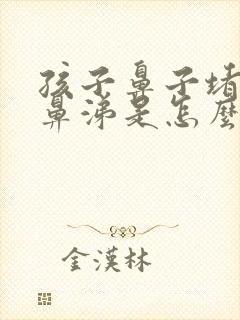 孩子鼻子堵
鼻涕是怎麼
金漢林